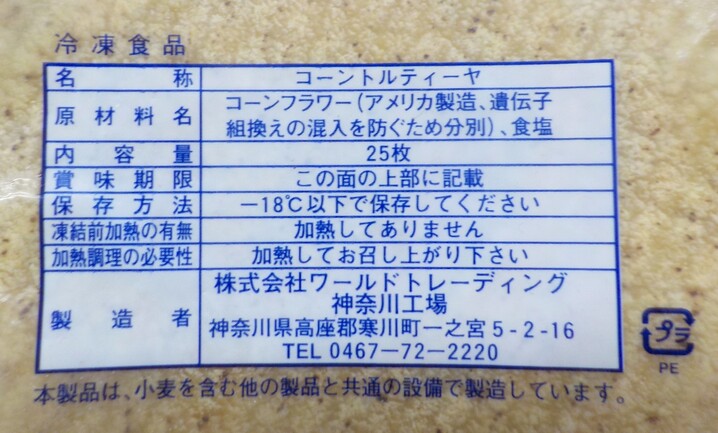 冷凍食品
名称 コーントルティーヤ
原材料名 コーンフラワー(アメリカ製造、遺伝子
組換えの混入を防ぐため分別)、食塩
内容量 25枚
賞味期限 この面の上部に記載
保存方法 -18℃以下で保存してください
凍結前加熱の有無 加熱してありません
加熱調理の必要性 加熱してお召し上がり下さい
製造者 株式会社ワールドトレーディング
神奈川工場
神奈川県高座郡寒川町一之宮5-2-16
TEL 0467-72-2220
プラ
PE
本製品は、小麦を含む他の製品と共通の設備で製造しています。